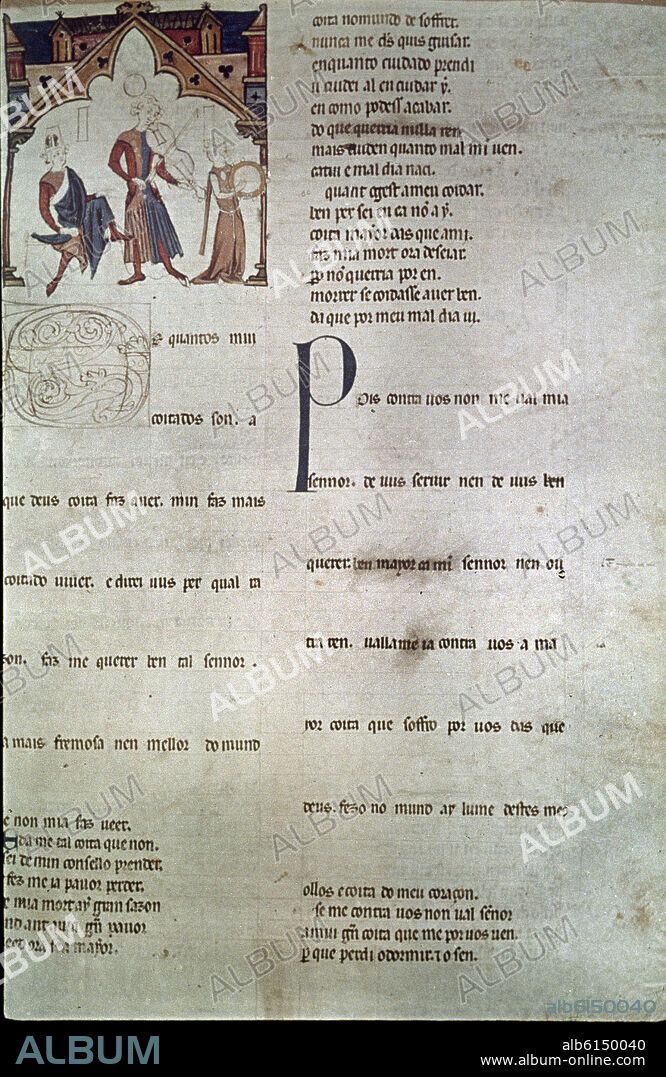 De quantos mui
coitados son. a
que deus coita faz auer. min faz mais
coitado uiuer. e direi uus per qual ra
zon. faz me querer ben tal sennor.
a mais fremosa nen mellor do mund
e non mia faz ueer.
E da me tal coita que non.
sei de min consello prender,
faz me ia pauor perder.
mia mort ay gran sazon
gñ pauor
mayor.
coita no mundo de soffrer.
nunca me d̃s quis guisar.
en quanto cuidado prendi
u cuidei al en cuidar y.
en como podess acabar.
do que querria nulla ren
mais cuiden quanto mal mi uen.
catiu e mal dia naci.
quant est a meu coidar.
ben per sei eu ca nõ a y.
coita mayor das que ami.
faz mia mort ora deseiar.
ꝑo nõ querria por en.
morrer se coidasse auer ben.
da que por meu mal dia ui.
Pois contra uos non me ual mia
sennor. de uus seruir nen de uus ben
querer. ben mayor ca mĩ sennor nen ou
tra ren. ualla me ia contra uos a ma
yor coita que soffro por uos das que
deus. fezo no mund ay lume destes me
ollos e coita do meu coraçon.
se me contra uos non ual señor
gñ coita que me por uos uen.
ꝑ que perdi o dormir. ⁊ o sen.
ALBUM
alb6150040
ALBUM
alb6150040
www.album-online.com